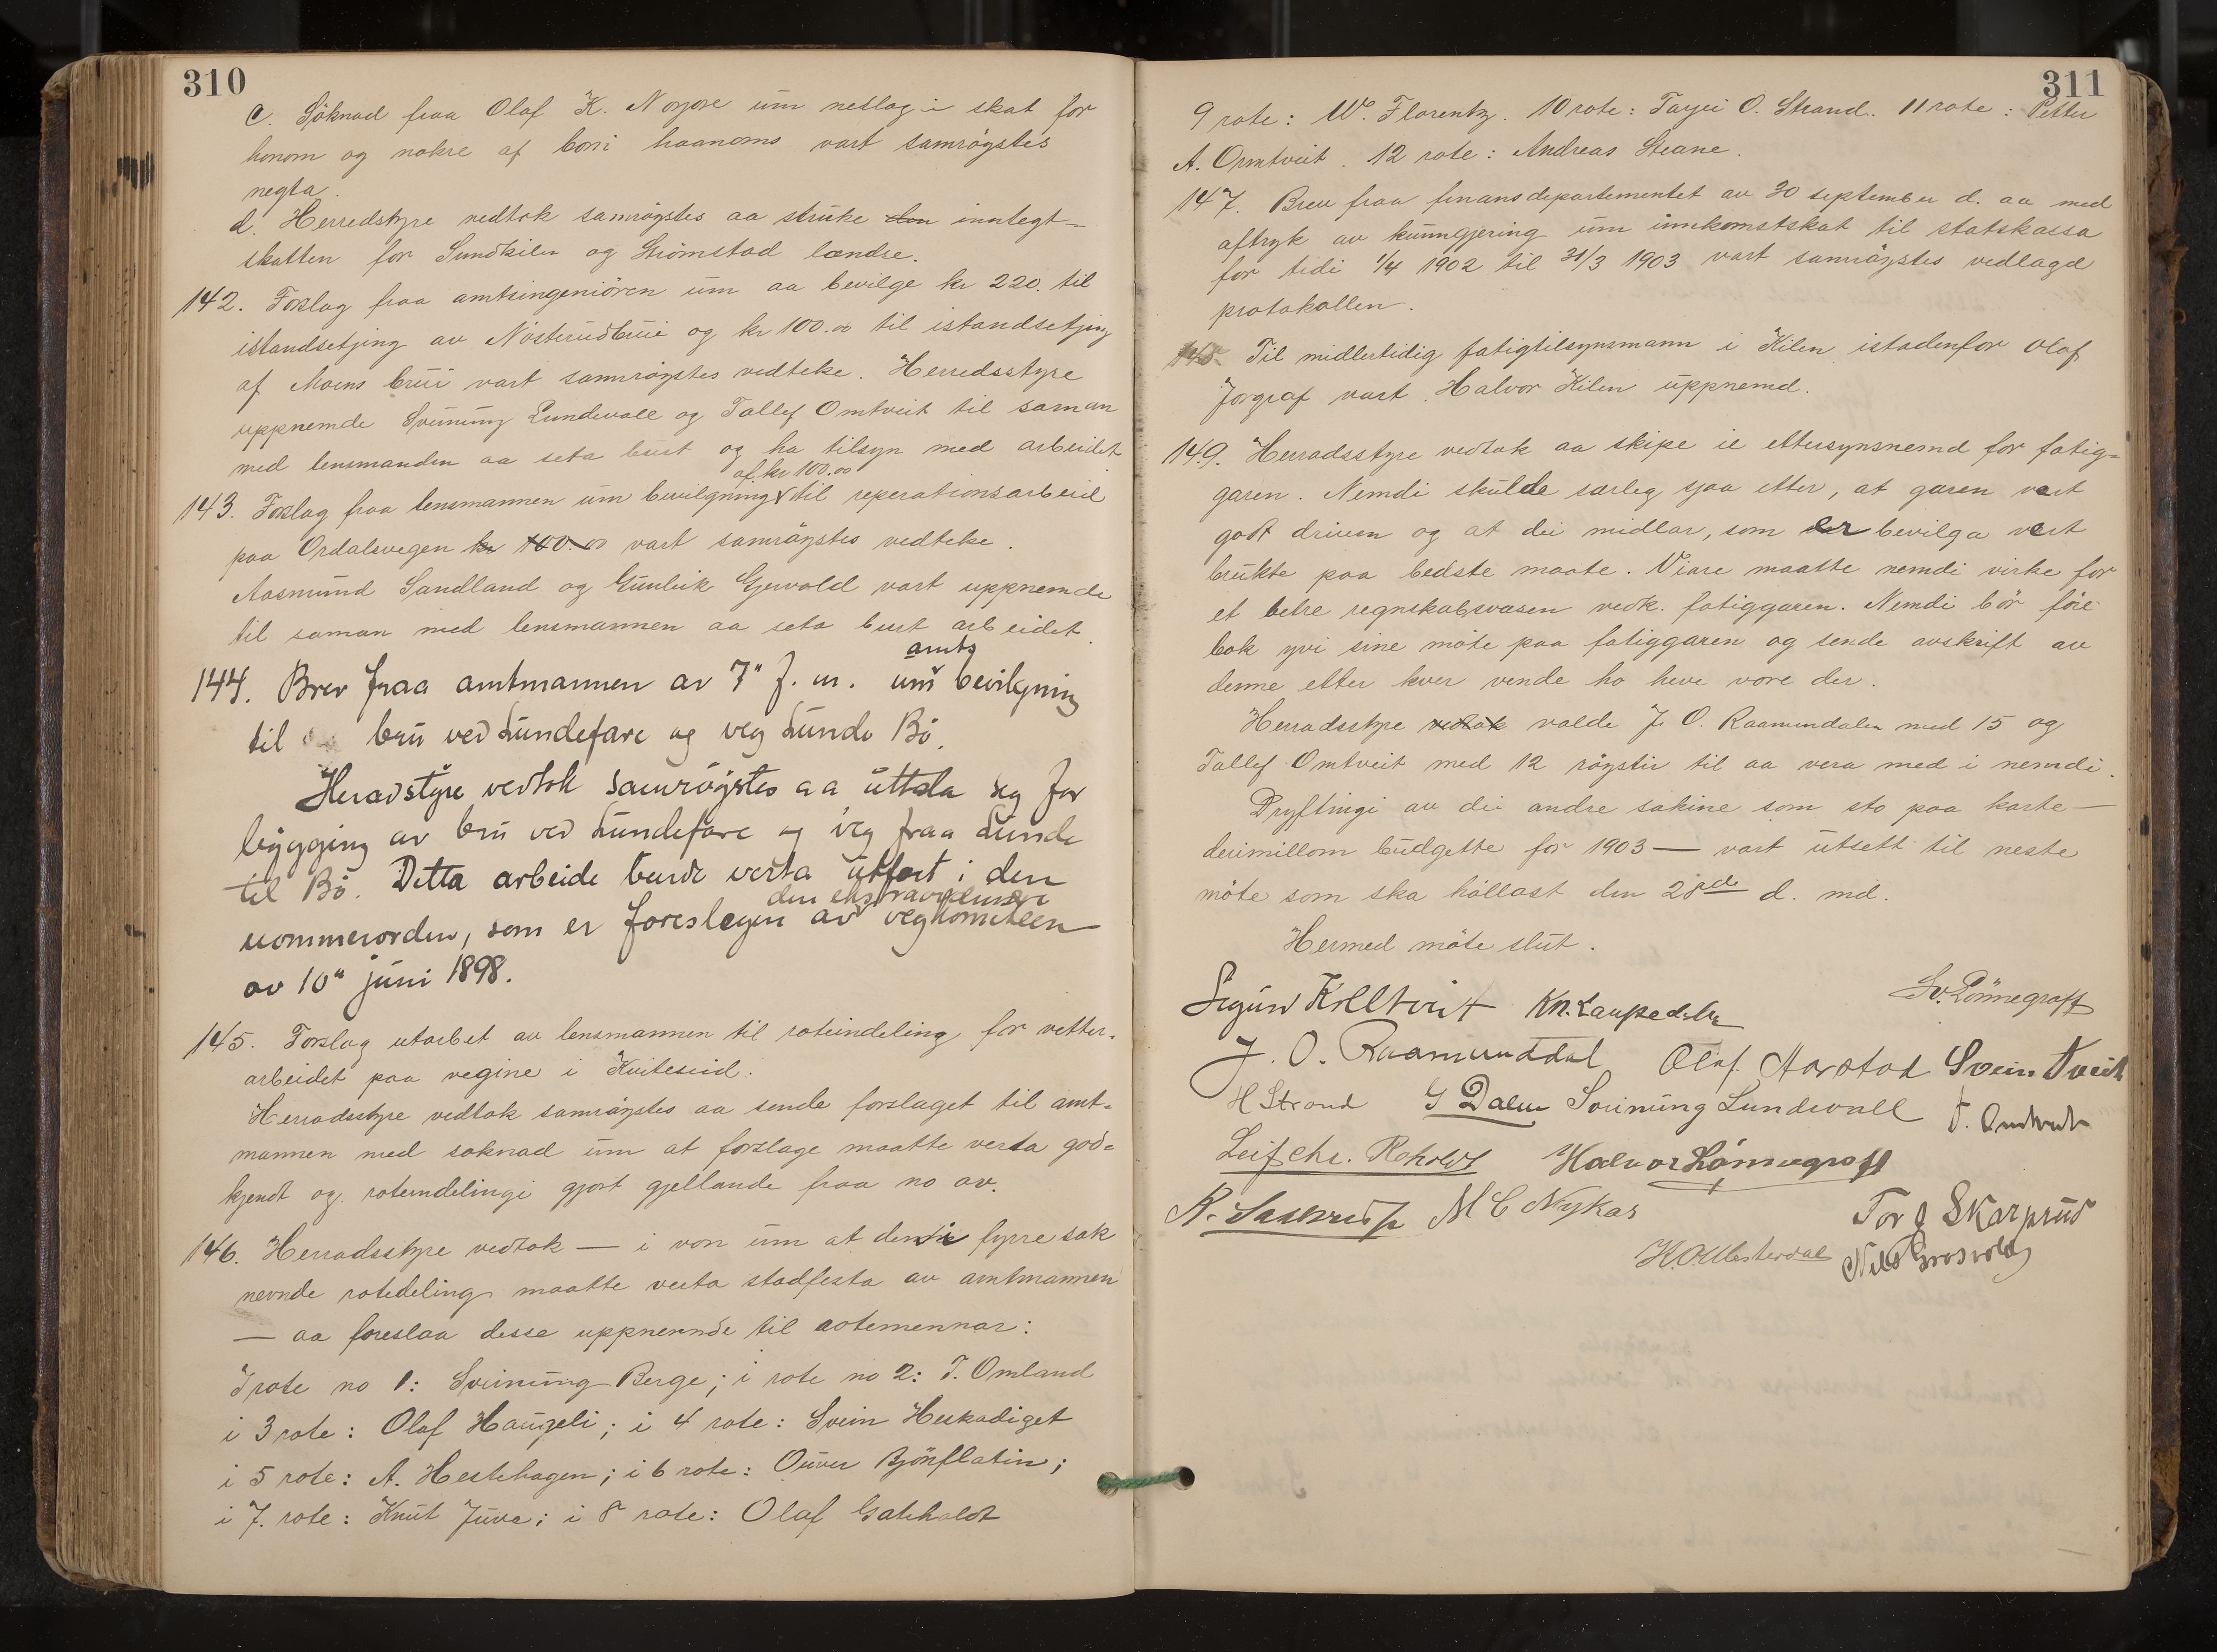 310
c. Söknad fraa Olaf K. Norjore um neslag i skat for
honom og nokre af boni haanoms vart samröystes
negta.
d. Herredstyre vedtok samröystes aa struke den inntegt-
skatten for Sundkilen og Strömstad lændse.
142. Forslag fraa amtsingeniören um aa bevilge kr 220. til
istandsetjing av Nösterudbrui og kr 100.00 til istandsetjing
af Moens brui vart samröystes vedteke. Herredsstyre
uppnemde Sveinung Lundevall og Tallef Omtveit til saman
med lensmanden aa seta burt og ha tilsyn med arbeidet.
af kr 100.00
143. Forslag fraa lensmannen um bevilgning til reperationsarbeid
paa Ordalsvegen kr 100.00 vart samröystes vedteke.
Aasmund Sandland og Gunleik Gjervold vart uppnemde
til saman med lensmannen aa seta burt arbeidet.
amts
144. Brev fraa amtmannen av 7" f. m. um bevilgning
til bru ved Lundefare og veg Lunde Bö.
Heradstyre vedtok samröystes aa uttala seg for
bygging av bru ved Lundefare og veg fraa Lunde
til Bö. Detta arbeide burde verta utfört i den
den ekstraordinære
nommerorden, som er foreslegen av vegkomiteen
av 10" juni 1898.
145. Forslag utarbet av lensmannen til roteindeling for vetter-
arbeidet paa vegine i Kviteseid.
Herradsstyre vedtok samröystes aa sende forslaget til amt-
mannen med soknad um at forslage maatte verta god-
kjendt og roteindelingi gjort gjellande fraa no av.
146. Herradsstyre vedtok — i von um at den i fyrre sak
nevnde rotedeling maatte verta stadfesta av amtmannen
— aa foreslaa desse uppnemnde til rotemennar:
I rote no 1: Sveinung Berge; i rote no 2: T. Omland
i 3 rote: Olaf Haugeli; i 4 rote: Svein Heskadiget
i 5 rote: A. Hestehagen; i 6 rote: Ouver Björnflatin;
i 7. rote: Knut Juve; i 8 rote: Olaf Gateholdt
311
9 rote: W. Florentz. 10 rote: Tarjei O. Strand. 11 rote: Petter
A. Ormtveit. 12 rote: Andreas Steane.
147. Brev fraa finansdepartementet av 30 september d. aa med
aftryk av kunngjering um innkomstskat til statskassa
for tidi 1/4 1902 til 31/3 1903 vart samröystes vedlagd
protokollen.
148. Til midlertidig fatigtilsynsmann i Kilen istadenfor Olaf
Jorgraf vart Halvor Kilen uppnemd.
149. Herradsstyre vedtok aa skipe ie ettersynsnemd for fatig-
garen. Nemdi skulde særleg sjaa etter, at garen vert
godt driven og at dei midlar, som er bevilga vert
brukte paa bedste maate. Viare maatte nemdi virke for
et betre regnskabsvæsen vedk. fatiggaren. Nemdi bör före
bok yvi sine möte paa fatiggaren og sende avskrift av
denne etter kver vende ho heve vore der.
Herradsstyre vedtok valde J. O. Raamundalen med 15 og
Tallef Omtveit med 12 röystir til aa vera med i nemdi.
Dryftingi av dei andre sakine som sto paa karte —
derimillom budgette for 1903 — vart utsett til neste
möte som ska hållast den 28de d. md.
Hermed möte slut.
Sigurd Kolltveit
Sv. Lönnegraff
J. O. Raamunddal Olaf Aarstad Svein Tveit
H Strand G Dalen Sveinung Lundevall T. Omtveit
Leif Chr. Roholdt Halvor Lönnegraff
M C Nykas Tor J Skarprud
K.O. Westerdal Nils Grosvold